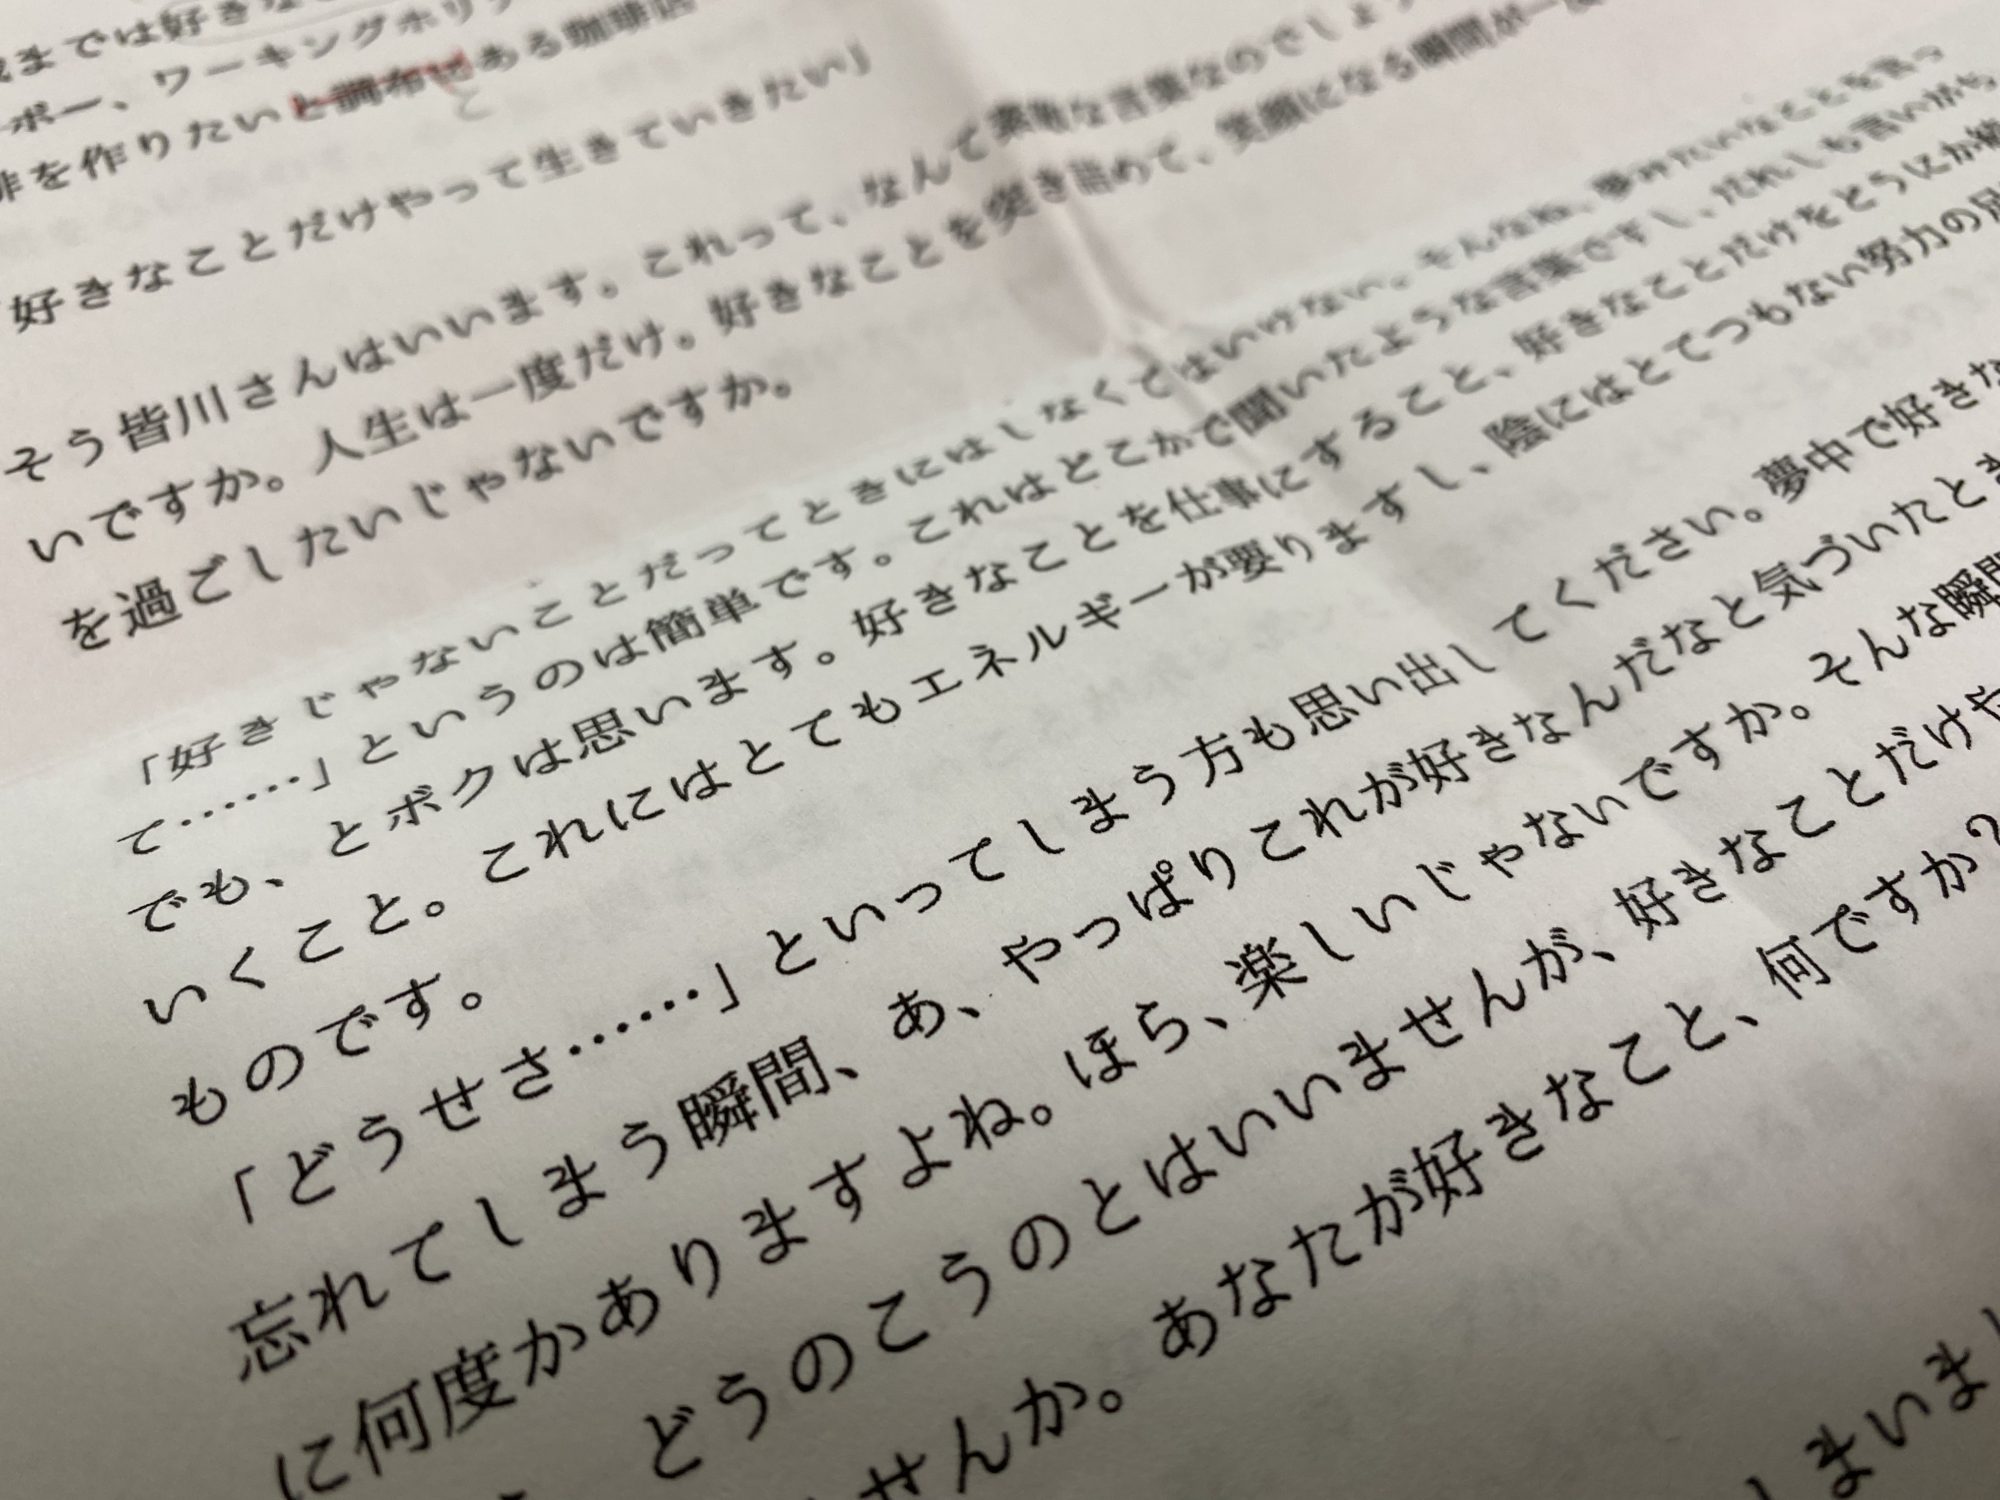 までは好きな
ーボー、ワーキングホリデ
を作りたいと調布にある珈琲店
好きなことだけやって生きていきたい」
そう皆川さんはいいます。これって、なんて素敵な言葉なのでしょ
いですか。人生は一度だけ。好きなことを突き詰めて、笑顔になる瞬間が一度
を過ごしたいじゃないですか。
「好きじゃないことだってときにはしなくてはいけない。そんなね、夢みたいなことを言っ
て……」というのは簡単です。これはどこかで聞いたような言葉ですし、だれしも言いがち
でも、とボクは思います。好きなことを仕事にすること、好きなことだけをどうにか続
いくこと。これにはとてもエネルギーが要りますし、陰にはとてつもない努力の
ものです。
「どうせさ……」といってしまう方も思い出してください。夢中で好きな
忘れてしまう瞬間、あ、やっぱりこれが好きなんだなと気づいたとき
に何度かありますよね。ほら、楽しいじゃないですか。そんな瞬間
どうのこうのとはいいませんが、好きなことだけや
せんか。あなたが好きなこと、何ですか?
しまいまし